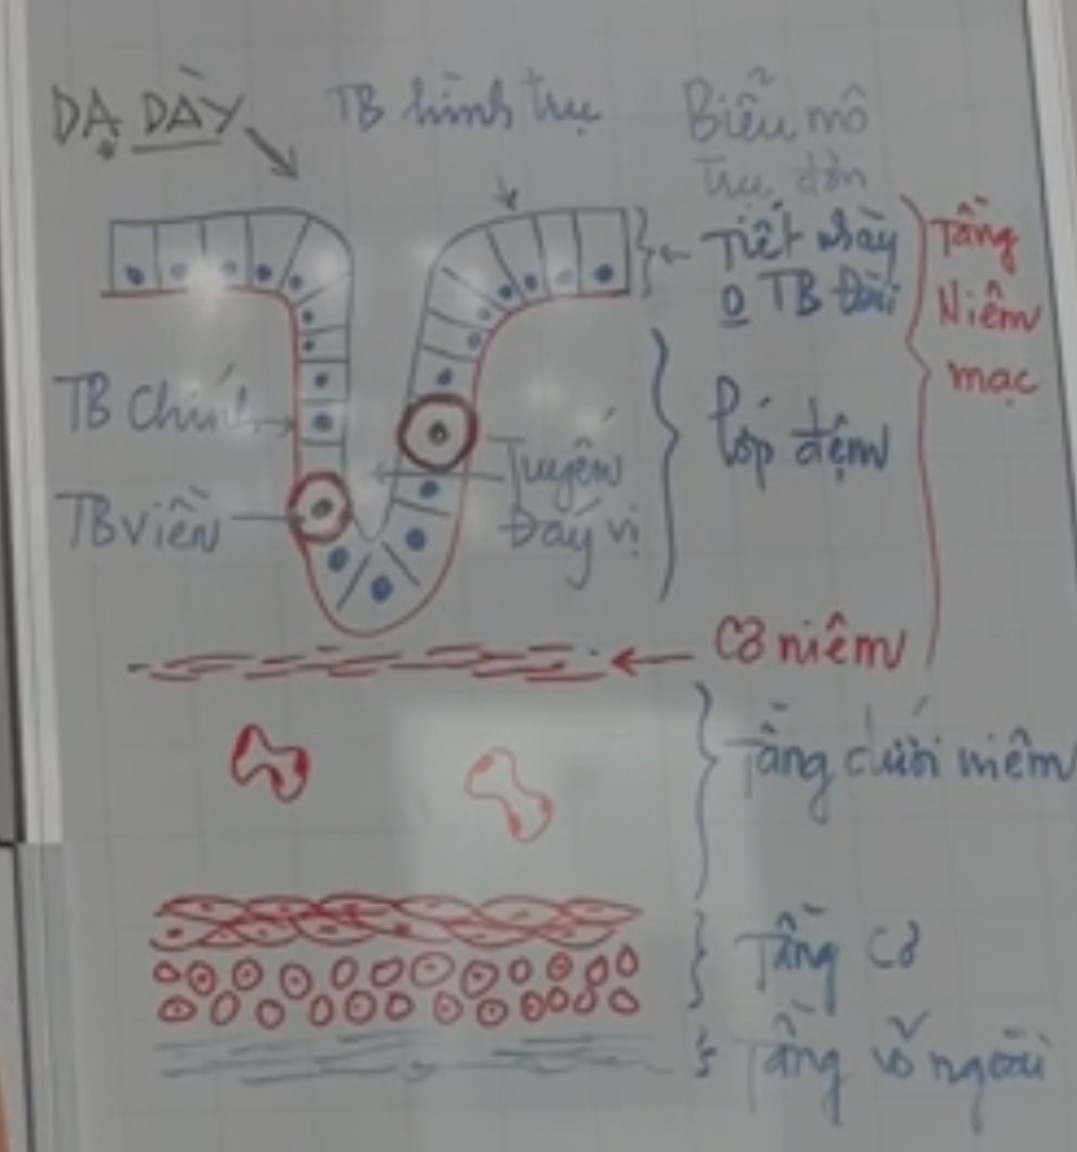 DẠ DÀY
TB hình trụ
Biểu mô
trụ đơn
Tiết nhày
0 TB Đài
Tầng
Niêm
mạc
TB Chính
TB viền
Tuyến
Đáy vị
lớp đệm
Cơ niêm
Tầng dưới niêm
Tầng cơ
Tầng vỏ ngoài